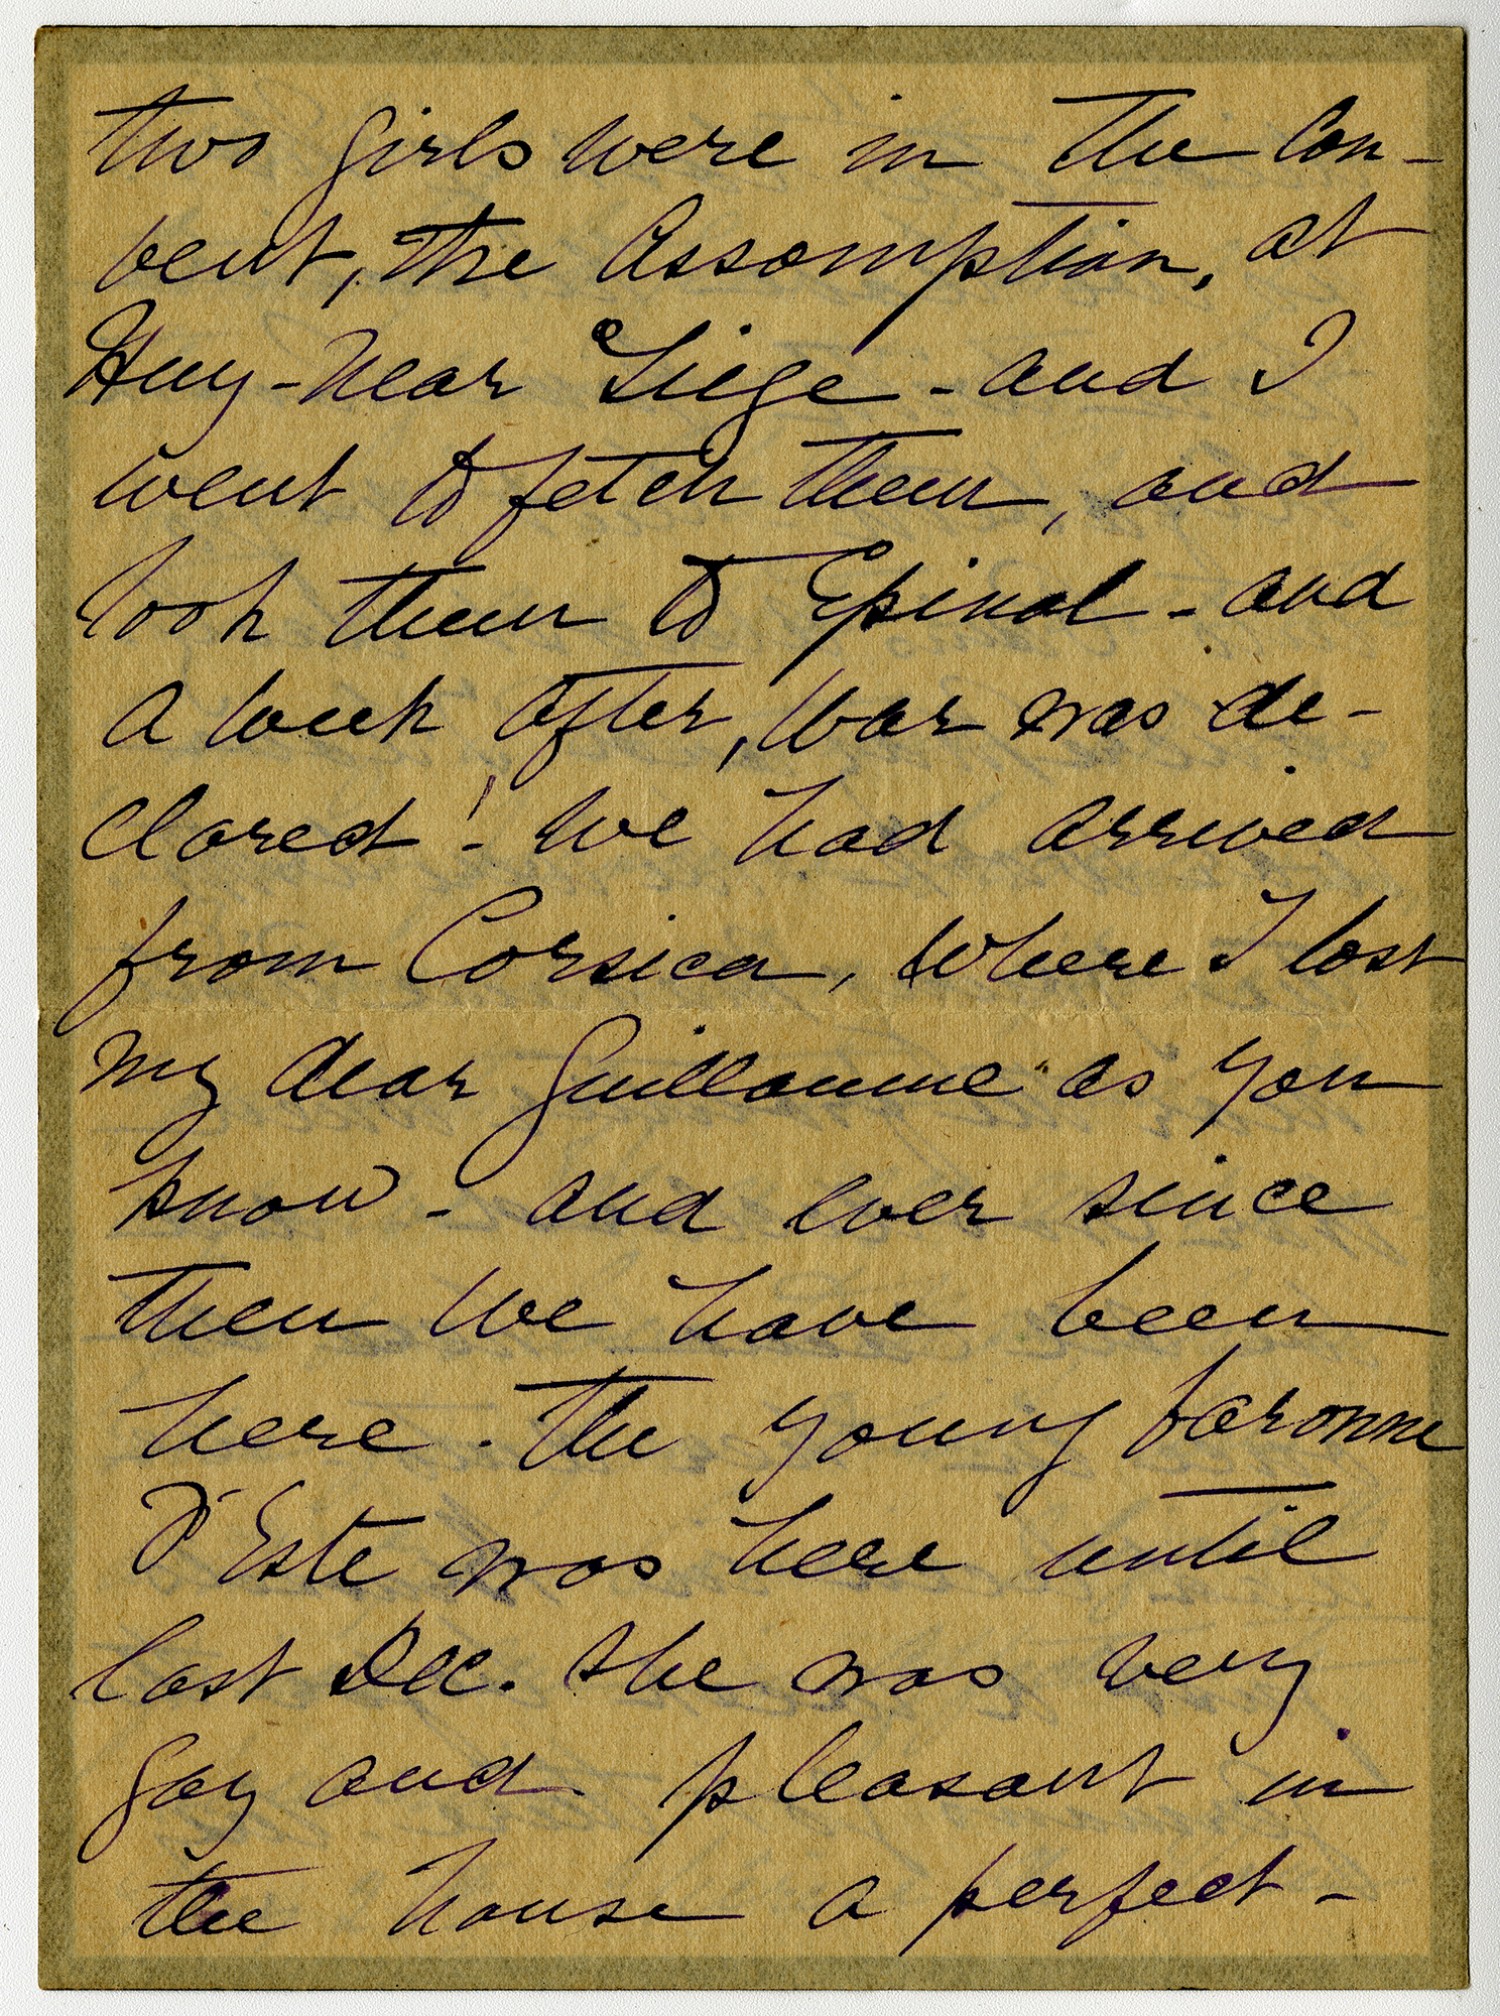 two girls were in the Con-
vent, the Assomption, at
Huy - near Liege - and I
went to fetch them, and
took them to Epinal - and
a week after, war was de-
clared ! - We had arrived
from Corsica, where I lost
my dear Guillaume as you
know - and ever since
then we have been
here . The young baronne
D'Este was here until
last Dec. she was very
gay and pleasant in
the house a perfect -